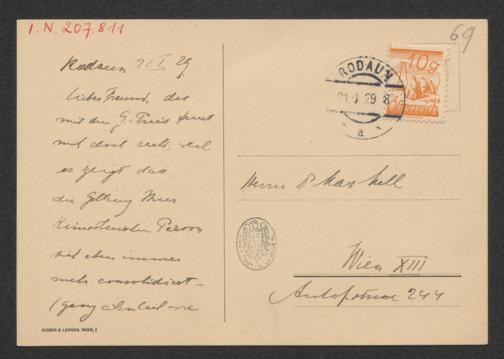 I.N. 207.811
69
Rodaun 21.I.29
lieber Freund, das
mit dem G. Preis freut
mich doch sehr, weil
es zeigt das
die Geltung Ihrer
Person
sich eben immer
mehr consolidiert –
(ganz
HUBER & LERNER, WIEN, I
10g
Österreich
RODAUN
21.I.29 8
a
Herrn
Wien XIII
244